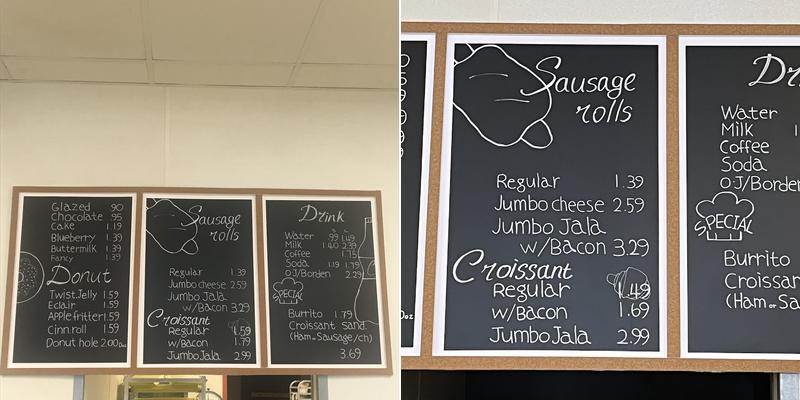 Glazed 90
Chocolate .95
Cake 1.19
Blueberry 1.39
Buttermilk 1.39
Fancy 1.39
Donut
Twist.Jelly 1.59
Eclair 1.59
Apple fritter 1.59
Cinn.roll 1.59
Donut hole 2.00 Doz
Sausage
rolls
Regular 1.39
Jumbo cheese 2.59
Jumbo Jala
w/Bacon 3.29
Croissant
Regular 1.59
w/Bacon 1.79
Jumbo Jala 2.99
Drink
Water .99 1.49
Milk 1.40 2.39
Coffee 1.75
Soda 1.19 1.79
O.J/Borden 2.29
SPECIAL
Burrito 1.79
Croissant Sand.
(Ham or Sausage/ch)
3.69
Doz
Sausage
rolls
Regular 1.39
Jumbo cheese 2.59
Jumbo Jala
w/Bacon 3.29
Croissant
Regular 1.49
w/Bacon 1.69
Jumbo Jala 2.99
Dr
Water
Milk 1
Coffee
Soda
O.J/Borden
SPECIAL
Burrito
Croissan
(Ham or Sa